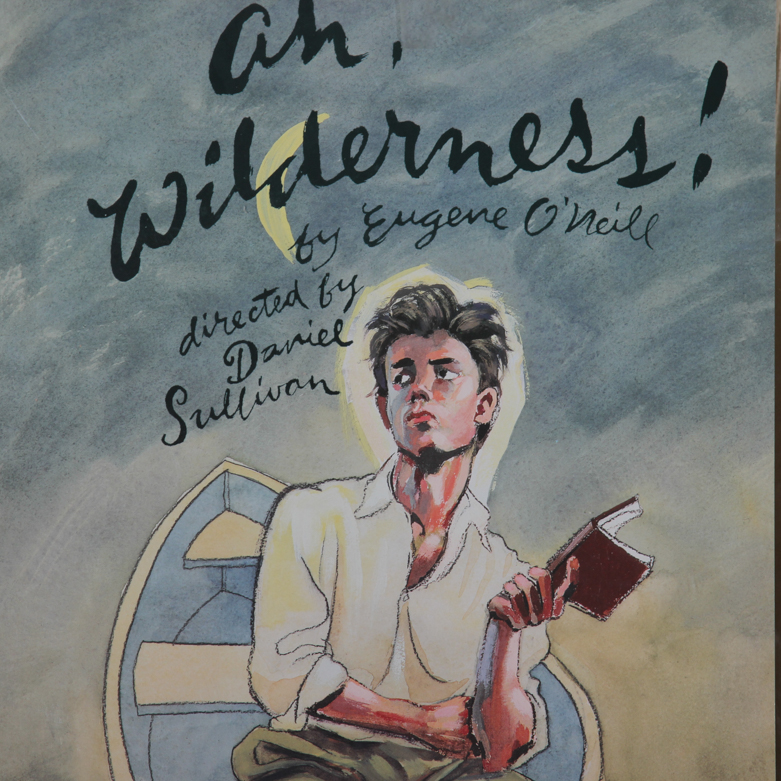 Ah,
Wilderness!
by Eugene O'Neill
directed by
Daniel
Sullivan